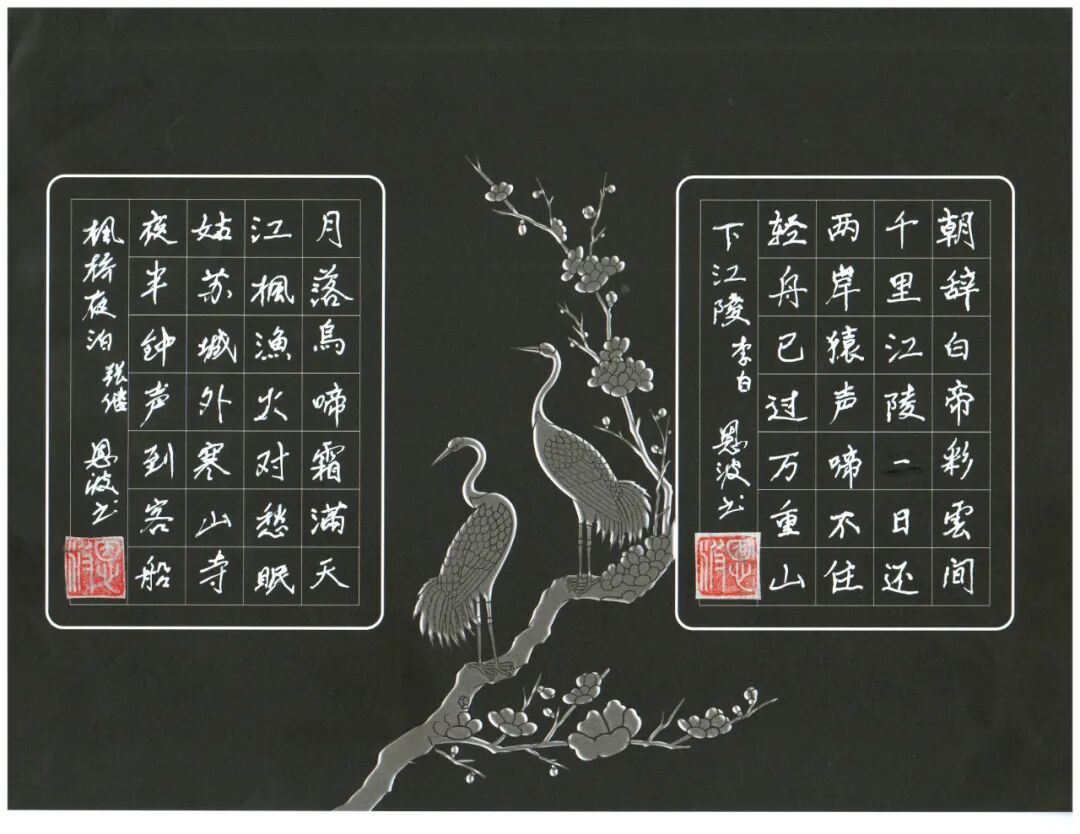 朝辞白帝彩雲间
千里江陵一日还
两岸猿声啼不住
轻舟已过万重山
下江陵 李白 恩波书
恩波
月落烏啼霜满天
江楓漁火对愁眠
姑苏城外寒山寺
夜半钟声到客船
楓桥夜泊 张继 恩波书
恩波